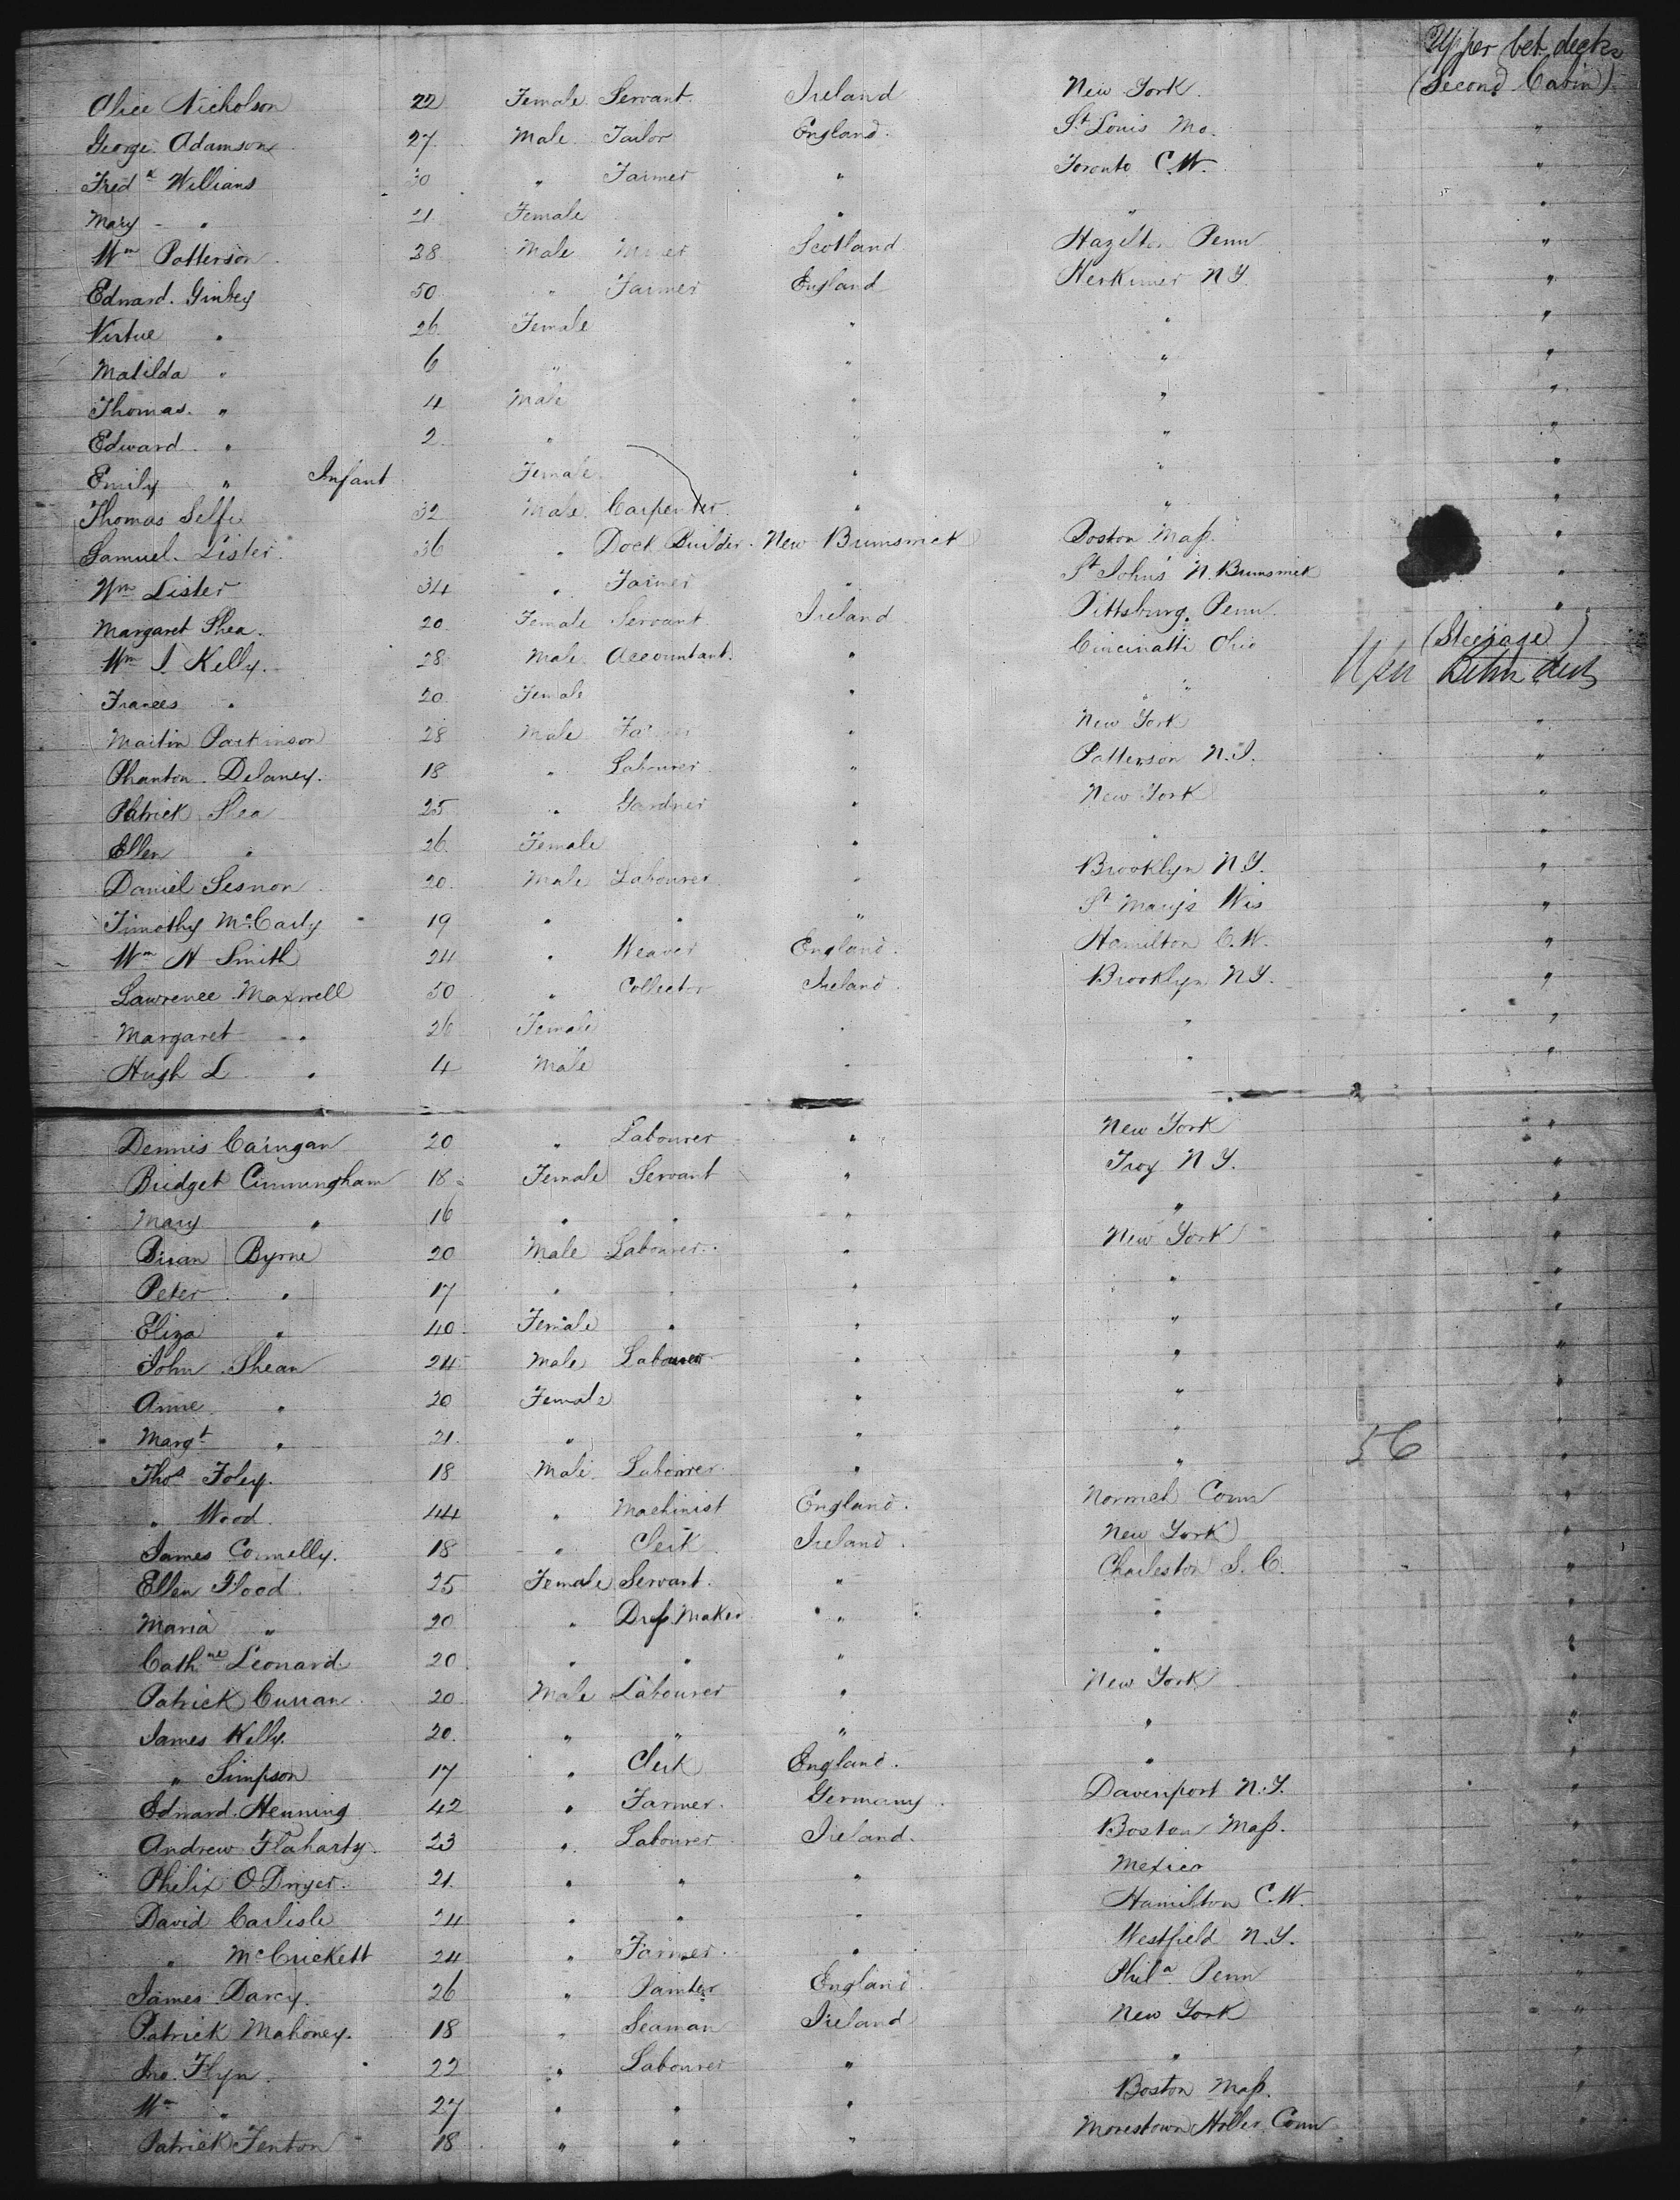 Upper bet decks
Alice Nicholson 22 Female Servant Ireland New York (Second Cabin)
George Adamson 27 Male Tailor England St Louis Mo. "
Fredk Willians 30 " Farmer " Toronto C.W. "
Mary " 21 Female " " "
Wm Patterson 28 Male Miner Scotland Hazelton Penn "
Edward Ginbey 50 " Farmer England Herkimer N.Y. "
Virtue " 26 Female " " "
Matilda " 6 " " " "
Thomas " 4 Male " " "
Edward " 2 " " " "
Emily " Infant Female " " "
Thomas Selfe 32 Male Carpenter " " "
Samuel Lister 36 " Dock Builder New Brunswick Boston Mass. "
Wm Lister 34 " Farmer " St Johns N. Brunswick "
Margaret Shea 20 Female Servant Ireland Pittsburg Penn "
Wm J. Kelly 28 Male Accountant " Cincinatti Ohio (Steerage)
Frances " 20 Female " " " Upper Betwn deck
Martin Parkinson 28 Male Farmer " New York "
Phanton Delaney 18 " Labourer " Patterson N.J. "
Patrick Shea 25 " Gardner " New York "
Ellen " 26 Female " " "
Daniel Sesnon 20 Male Labourer " Brooklyn N.Y. "
Timothy McCarty 19 " " " St Marys Wis "
Wm H Smith 24 " Weaver England Hamilton C.W. "
Lawrence Maxwell 50 " Collector Ireland Brooklyn N.Y. "
Margaret " 26 Female " " "
Hugh L " 4 Male " " "
Dennis Carngan 20 " Labourer " New York "
Bridget Cunningham 18 Female Servant " Troy N.Y. "
Mary " 16 " " " " "
Brian Byrne 20 Male Labourer " New York "
Peter " 17 " " " " "
Eliza " 40 Female " " " "
John Shean 24 Male Labourer " " "
Anne " 20 Female " " "
Margt " 21 " " " "
Thos Foley 18 Male Labourer " " 56 "
" Wood 44 " Machinist England Norwich Conn "
James Connelly 18 " Clerk Ireland New York "
Ellen Flood 25 Female Servant " Charleston S.C. "
Maria " 20 " Dress Maker " " "
Cathne Leonard 20 " " " " "
Patrick Curran 20 Male Labourer " New York "
James Kelly 20 " " " " "
" Simpson 17 " Clerk England " "
Edward Henning 42 " Farmer Germany Davenport N.Y. "
Andrew Flaharty 23 " Labourer Ireland Boston Mass. "
Philix O.Dwyer 21 " " " Mexico "
David Carlisle 24 " " " Hamilton C.W. "
" McCrickett 24 " Farmer " Westfield N.Y. "
James Darcy 26 " Painter England Phila Penn "
Patrick Mahoney 18 " Seaman Ireland New York "
Jno. Flyn 22 " Labourer " " "
Wm " 27 " " " Boston Mass. "
Patrick Fenton 18 " " " Morestown Conn "